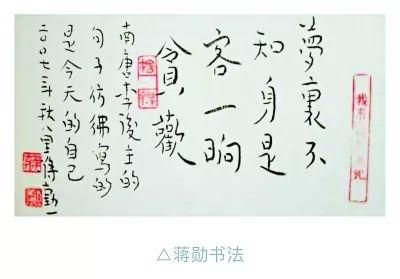 夢裏不
知身是
客一晌
貪歡
南唐李後主的
句子彷彿寫的
是今天的自己
二〇〇七年秋八里蔣勳
捨得
△蒋勋书法